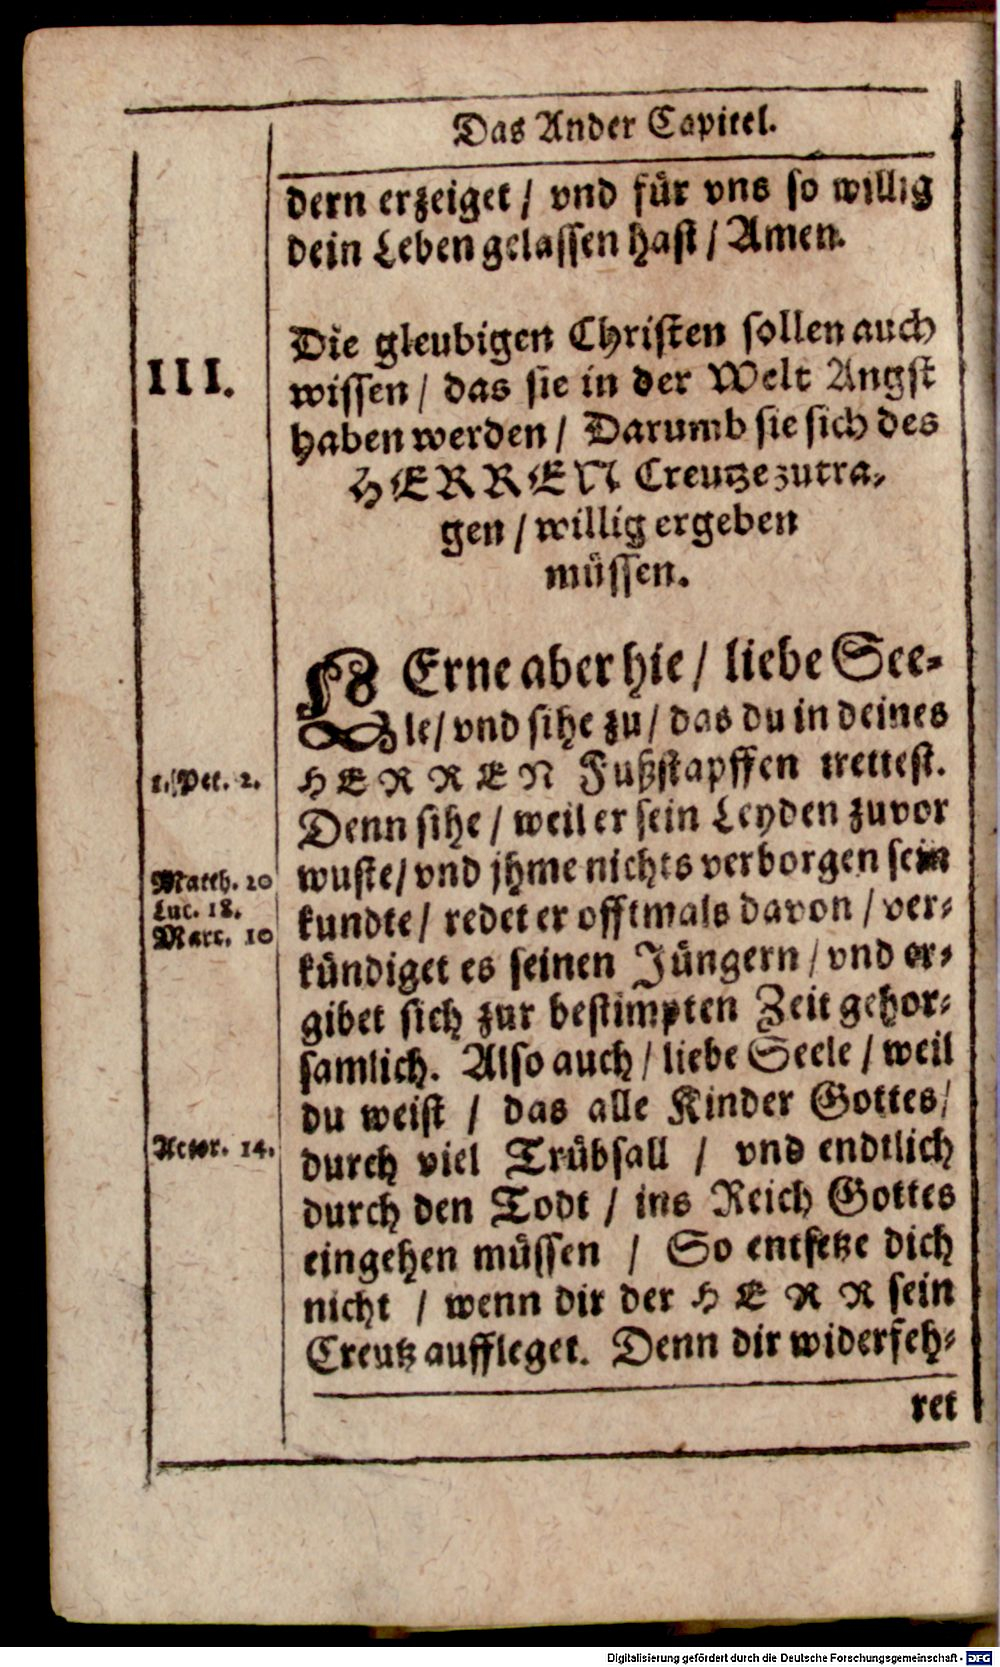 Das Ander Capitel.
dern erzeiget / vnd für vns so willig
dein Leben gelassen hast / Amen.
III.
Die gleubigen Christen sollen auch
wissen / das sie in der Welt Angst
haben werden / Darumb sie sich des
HERREN Creutze zutra-
gen / willig ergeben
müssen.
LErne aber hie / liebe See-
le / vnd sihe zu / das du in deines
1. Pet. 2.
HERREN Fußstapffen trettest.
Denn sihe / weil er sein Leyden zuvor
Matth. 20
wuste / vnd jhme nichts verborgen sein
Luc. 18.
kundte / redet er offtmals davon / ver-
Marc. 10
kündiget es seinen Jüngern / vnd er-
gibet sich zur bestimpten Zeit gehor-
samlich. Also auch / liebe Seele / weil
du weist / das alle Kinder Gottes /
Actor. 14.
durch viel Trübsall / vnd endtlich
durch den Todt / ins Reich Gottes
eingehen müssen / So entsetze dich
nicht / wenn dir der HERR sein
Creutz auffleget. Denn dir widerfeh-
ret
Digitalisierung gefördert durch die Deutsche Forschungsgemeinschaft - DFG